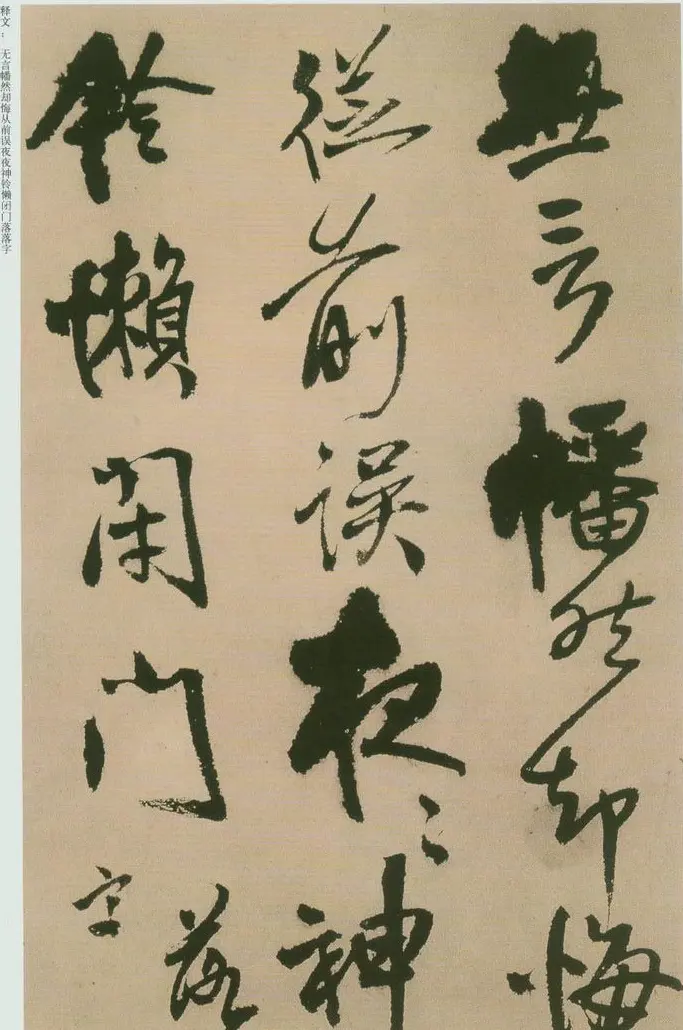 無言幡然却悔
從前誤夜々神
鈴懶閉門落
字
释文：无言幡然却悔从前误夜夜神铃懒闭门落落字